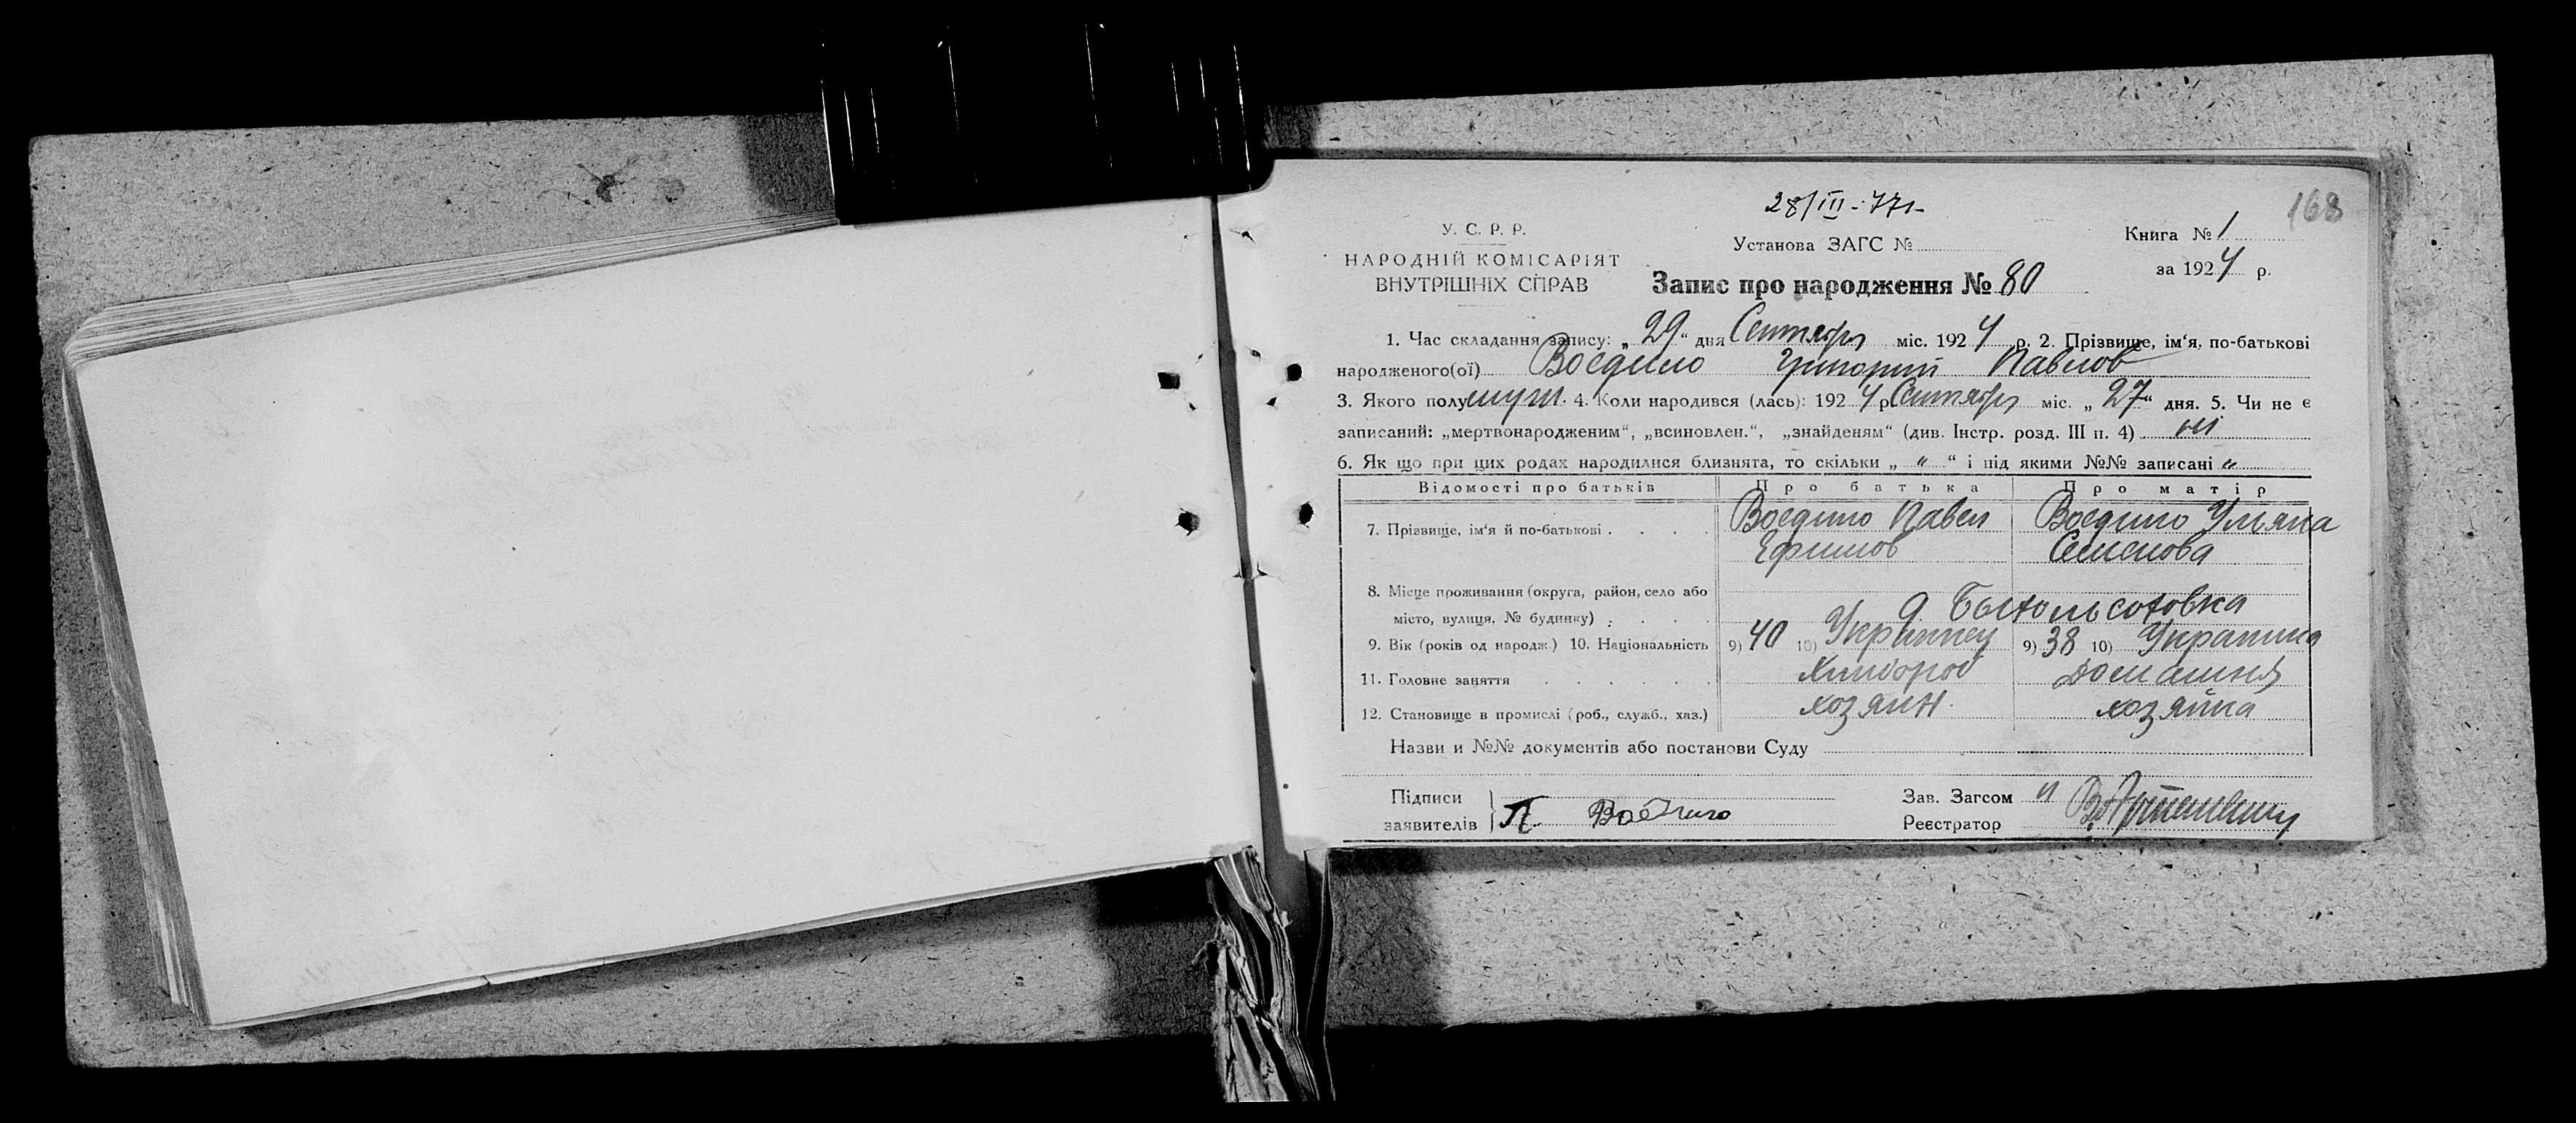 168
28/III-77г.
У. С. Р. Р.
НАРОДНІЙ КОМІСАРІЯТ
ВНУТРІШНІХ СПРАВ
Установа ЗАГС №
Запис про народження № 80
Книга № 1
за 1924 р.
1. Час складання запису: „29“ дня Сентября міс. 1924 р. 2. Прізвище, ім'я, по-батькові
народженого(ої) Воедило Григорий Павлов
3. Якого полу муж. 4. Коли народився (лась): 1924 р. Сентября міс. „27“ дня. 5. Чи не є
записаний: „мертвонародженим“, „всиновлен.“, „знайденям“ (див. Інстр. розд. III п. 4)
6. Як що при цих родах народилися близнята, то скільки „ " “ і під якими №№ записані "
Відомості про батьків Про батька Про матір
7. Прізвище, ім'я й по-батькові . . . . Воедило Павел Воедило Ульяна
Ефимов Семенова
8. Місце проживання (округа, район, село або
місто, вулиця, № будинку) . . . .
9. Вік (років од народж.) 10. Національність 9) 40 10) Украинец 9) 38 10) Украинка
11. Головне заняття . . . . . . Хлибороб домашняя
12. Становище в промислі (роб., служб., хаз.) хозяин. хозяйка
Назви и №№ документів або постанови Суду
Підписи
заявителів П. Воедило
Зав. Загсом
Реєстратор